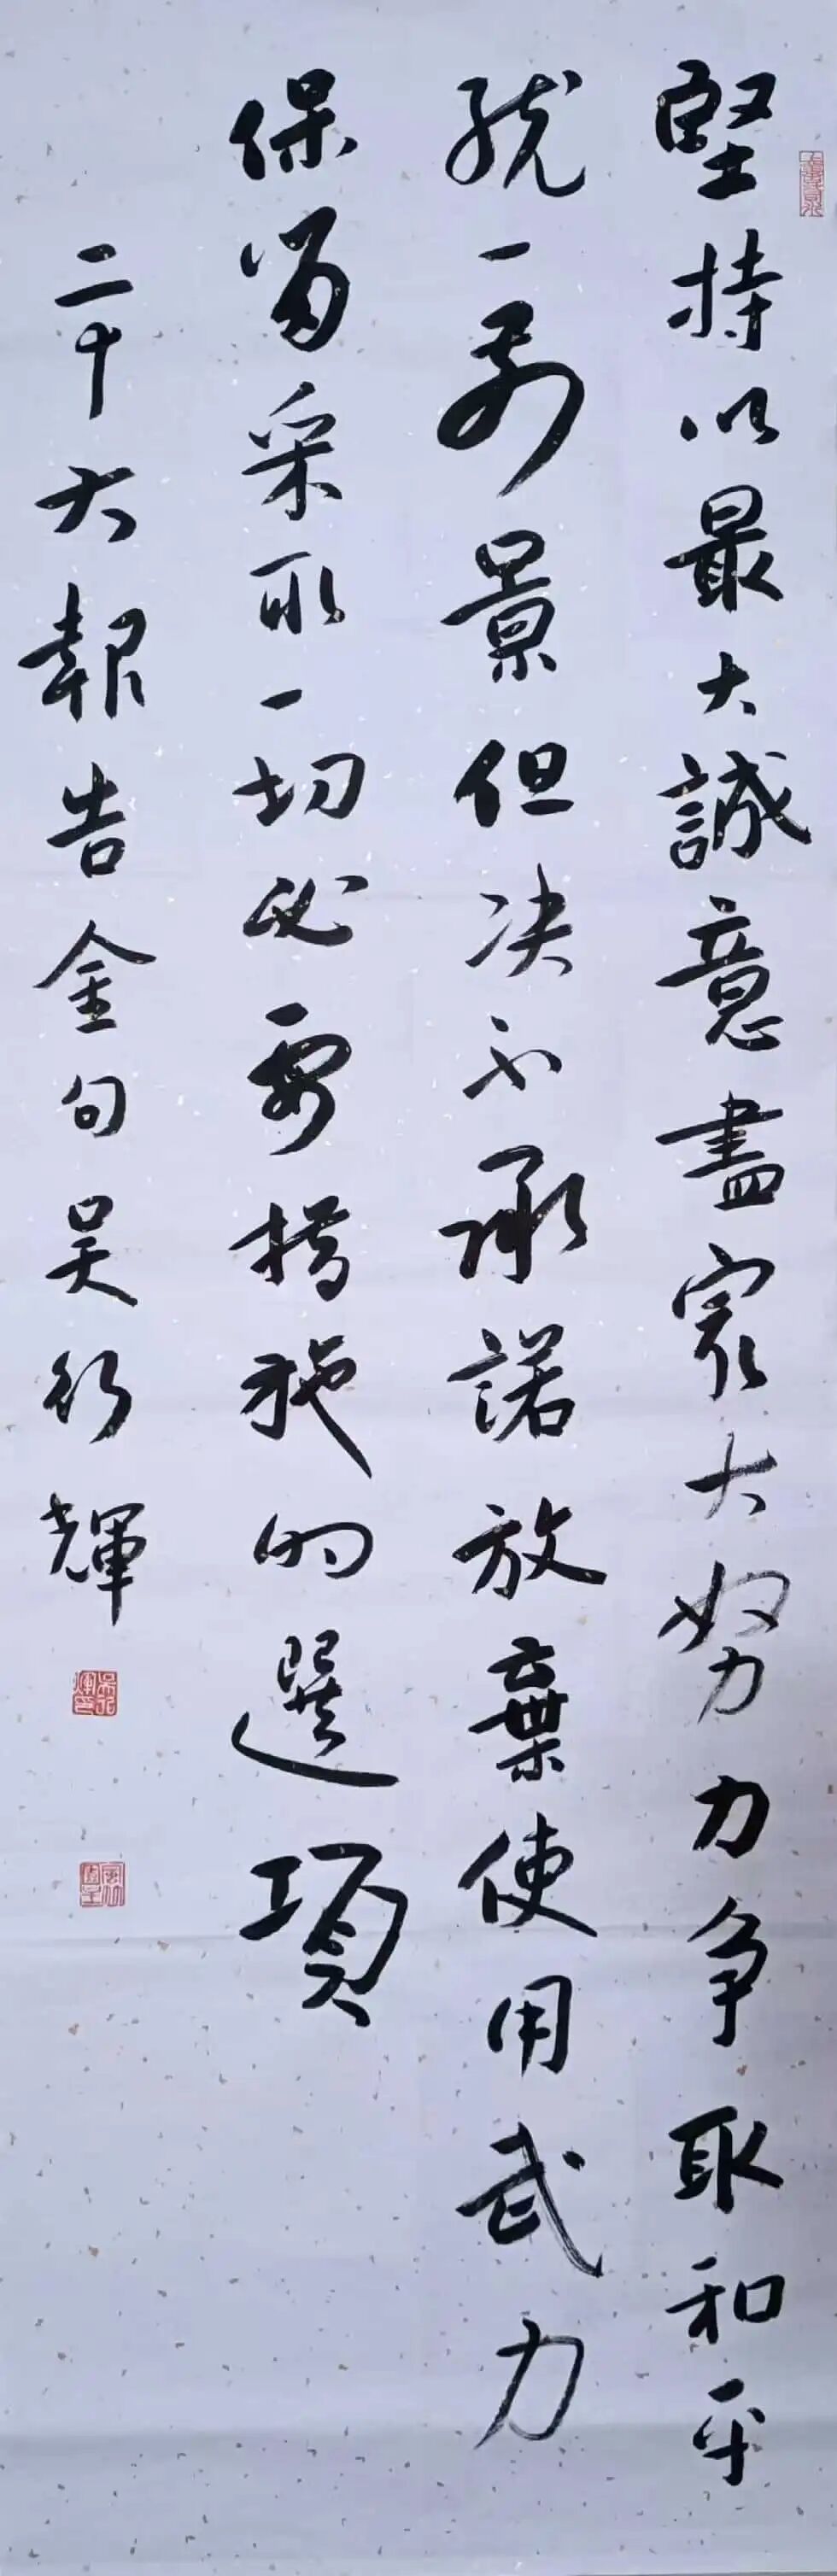 堅持以最大誠意盡㝡大努力争取和平
統一前景但决不承諾放棄使用武力
保留采取一切必要措施的選項
二十大報告金句吴行輝